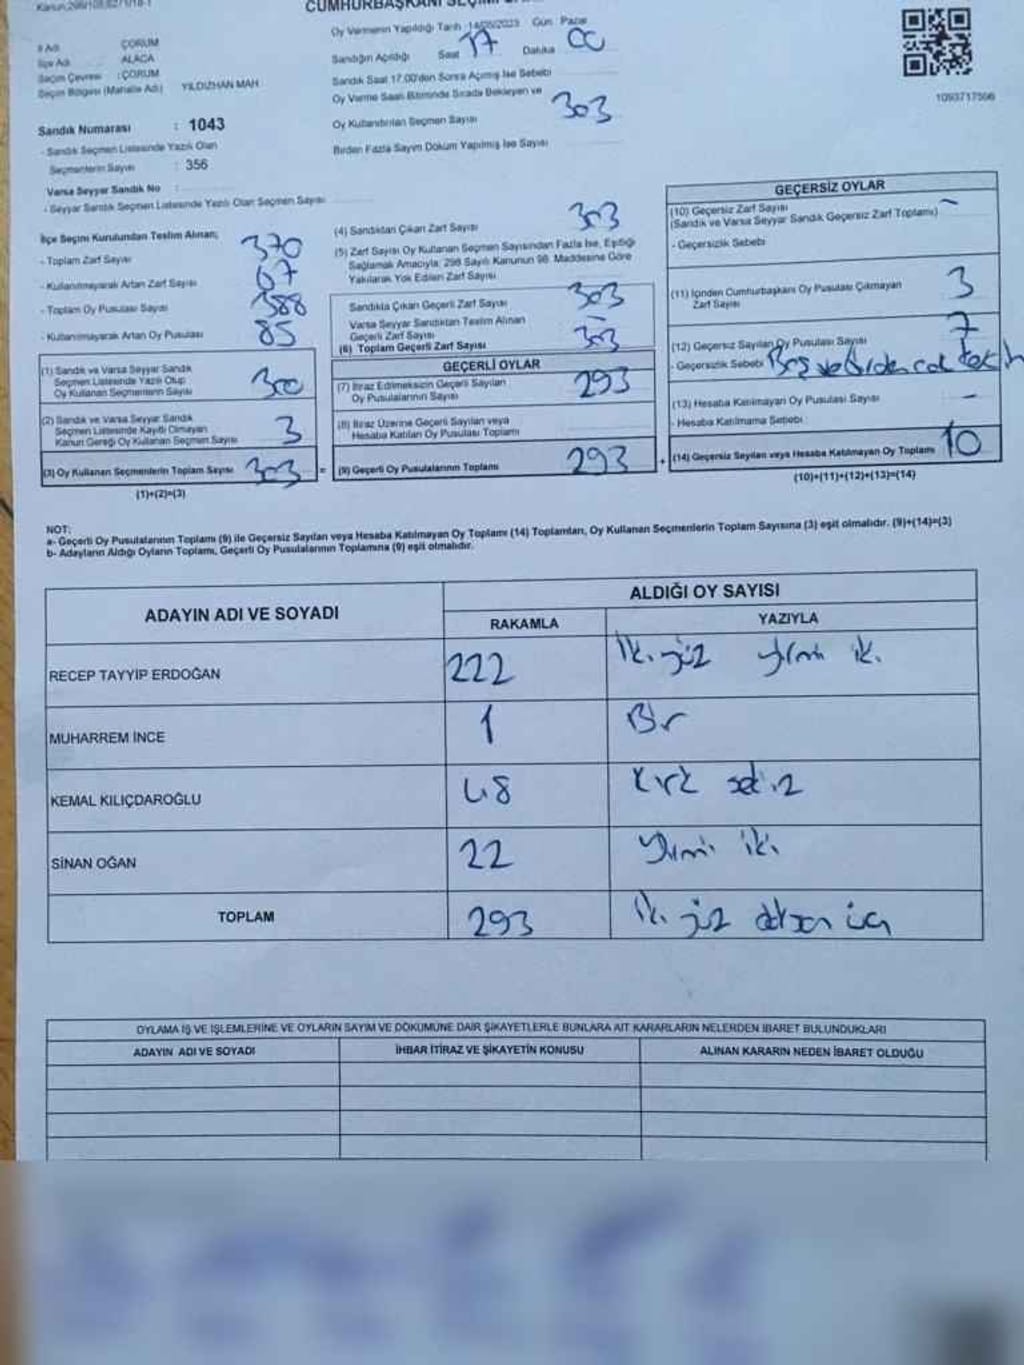 CUMHURBAŞKANI SEÇİMİ
Oy Vermenin Yapıldığı Tarih :14/05/2023 Gün : Pazar
İl Adı ÇORUM
İlçe Adı ALACA
Seçim Çevresi : ÇORUM
Seçim Bölgesi (Mahalle Adı) YILDIZHAN MAH
Sandık Numarası : 1043
- Sandık Seçmen Listesinde Yazılı Olan
Seçmenlerin Sayısı : 356
Varsa Seyyar Sandık No :
- Seyyar Sandık Seçmen Listesinde Yazılı Olan Seçmen Sayısı
Sandığın Açıldığı Saat 17 Dakika 00
Sandık Saat 17.00'den Sonra Açılmış İse Sebebi
Oy Verme Saati Bitiminde Sırada Bekleyen ve
Oy Kullandırılan Seçmen Sayısı 303
Birden Fazla Sayım Döküm Yapılmış İse Sayısı
1093717556
İlçe Seçim Kurulundan Teslim Alınan;
- Toplam Zarf Sayısı 370
- Kullanılmayarak Artan Zarf Sayısı 67
- Toplam Oy Pusulası Sayısı 388
- Kullanılmayarak Artan Oy Pusulası 85
(1) Sandık ve Varsa Seyyar Sandık
Seçmen Listesinde Yazılı Olup
Oy Kullanan Seçmenlerin Sayısı 300
(2) Sandık ve Varsa Seyyar Sandık
Seçmen Listesinde Kayıtlı Olmayan
Kanun Gereği Oy Kullanan Seçmen Sayısı 3
(3) Oy Kullanan Seçmenlerin Toplam Sayısı 303 =
(1)+(2)=(3)
(4) Sandıktan Çıkan Zarf Sayısı 303
(5) Zarf Sayısı Oy Kullanan Seçmen Sayısından Fazla İse, Eşitliği
Sağlamak Amacıyla; 298 Sayılı Kanunun 98. Maddesine Göre
Yakılarak Yok Edilen Zarf Sayısı
Sandıkta Çıkan Geçerli Zarf Sayısı 303
Varsa Seyyar Sandıktan Teslim Alınan
Geçerli Zarf Sayısı
(6) Toplam Geçerli Zarf Sayısı 303
GEÇERLİ OYLAR
(7) İtiraz Edilmeksizin Geçerli Sayılan
Oy Pusulalarının Sayısı 293
(8) İtiraz Üzerine Geçerli Sayılan veya
Hesaba Katılan Oy Pusulası Toplamı
(9) Geçerli Oy Pusulalarının Toplamı 293 +
GEÇERSİZ OYLAR
(10) Geçersiz Zarf Sayısı -
(Sandık ve Varsa Seyyar Sandık Geçersiz Zarf Toplamı)
- Geçersizlik Sebebi
(11) İçinden Cumhurbaşkanı Oy Pusulası Çıkmayan
Zarf Sayısı 3
(12) Geçersiz Sayılan Oy Pusulası Sayısı 7
- Geçersizlik Sebebi Boş ve Birden çok
(13) Hesaba Katılmayan Oy Pusulası Sayısı -
- Hesaba Katılmama Sebebi
(14) Geçersiz Sayılan veya Hesaba Katılmayan Oy Toplamı 10
(10)+(11)+(12)+(13)=(14)
NOT:
a- Geçerli Oy Pusulalarının Toplamı (9) ile Geçersiz Sayılan veya Hesaba Katılmayan Oy Toplamı (14) Toplamları, Oy Kullanan Seçmenlerin Toplam Sayısına (3) eşit olmalıdır. (9)+(14)=(3)
b- Adayların Aldığı Oyların Toplamı, Geçerli Oy Pusulalarının Toplamına (9) eşit olmalıdır.
ADAYIN ADI VE SOYADI
ALDIĞI OY SAYISI
RAKAMLA YAZIYLA
RECEP TAYYİP ERDOĞAN 222 İki yüz yirmi iki
MUHARREM İNCE 1 Bir
KEMAL KILIÇDAROĞLU 48 Kırk sekiz
SİNAN OĞAN 22 Yirmi iki
TOPLAM 293 İki yüz doksan üç
OYLAMA İŞ VE İŞLEMLERİNE VE OYLARIN SAYIM VE DÖKÜMÜNE DAİR ŞİKAYETLERLE BUNLARA AİT KARARLARIN NELERDEN İBARET BULUNDUKLARI
ADAYIN ADI VE SOYADI İHBAR İTİRAZ VE ŞİKAYETİN KONUSU ALINAN KARARIN NEDEN İBARET OLDUĞU